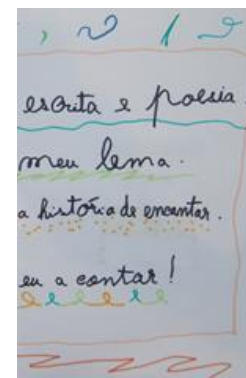 escrita e poesia
meu lema.
a história de encantar.
eu a contar!